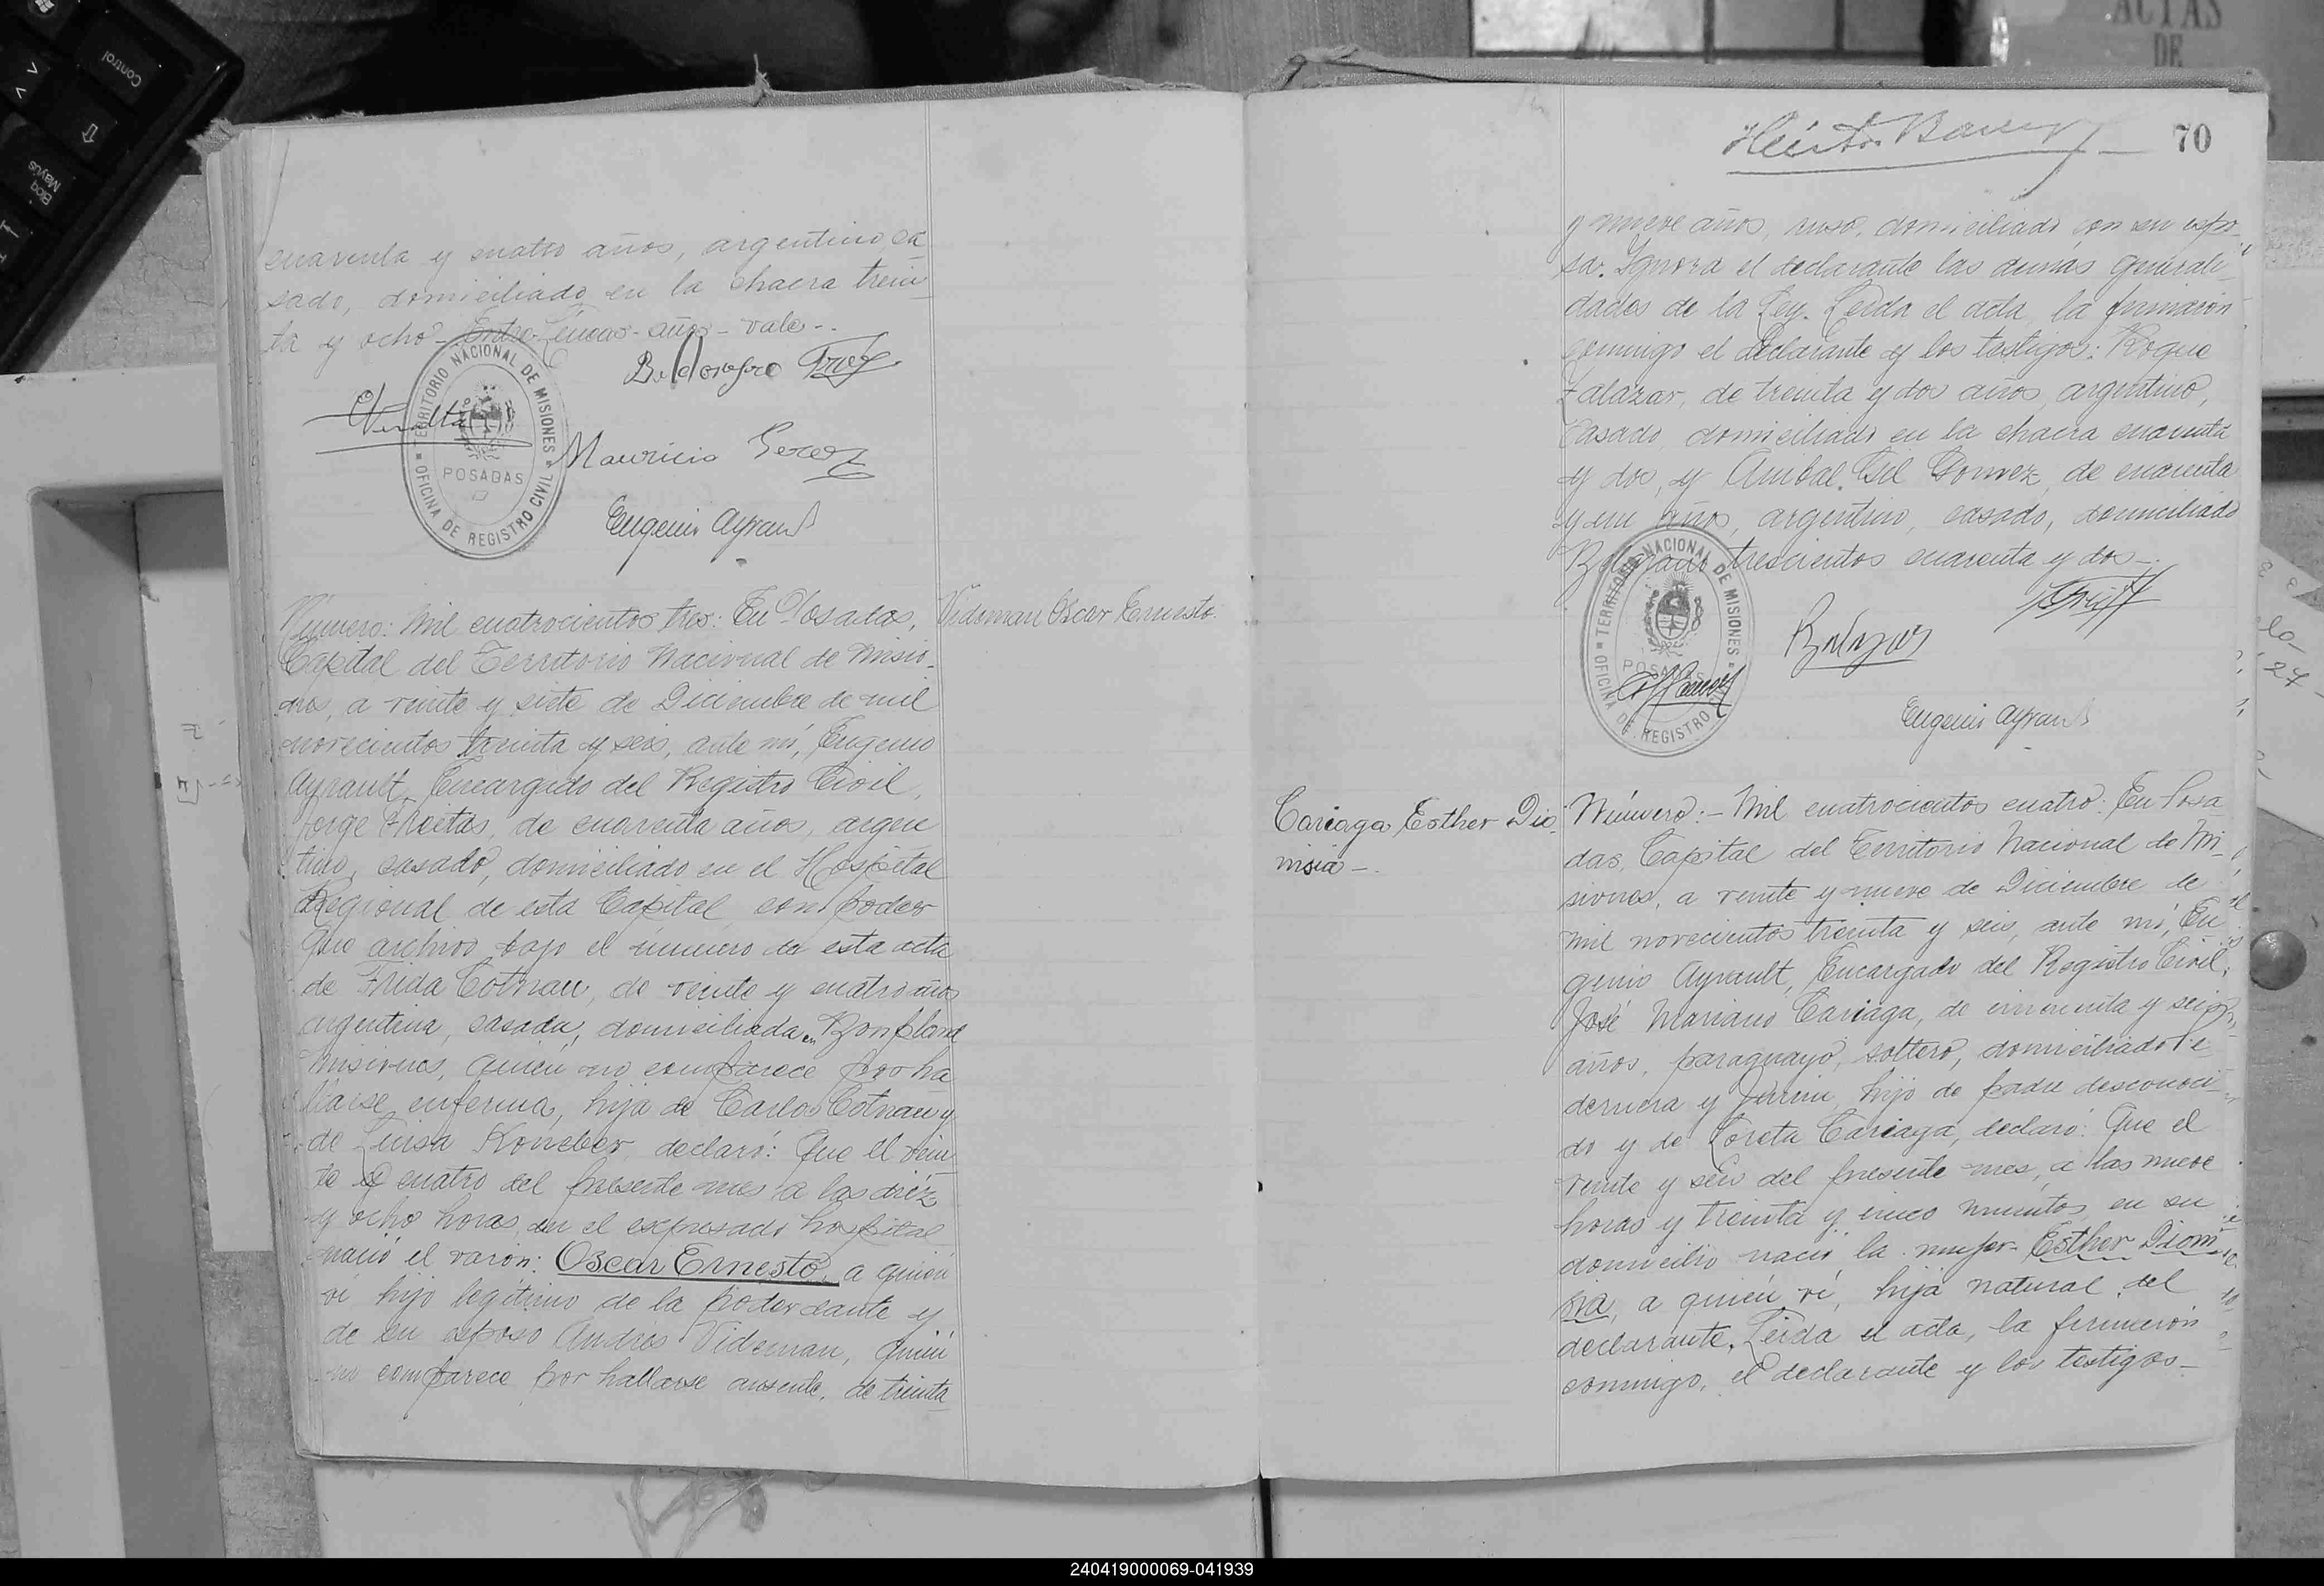 Control
Bloq
Mayús
ACTAS
DE
cuarenta y cuatro años, argentino ca
sado, domiciliado en la chacra trein
ta y ocho - Entre líneas - años - vale -.
TERRITORIO NACIONAL DE MISIONES
POSADAS
OFICINA DE REGISTRO CIVIL
Mauricio
Eugenio Ayrault
Número: Mil cuatrocientos tres: En Posadas,
Capital del Territorio Nacional de Misio
nes, a veinte y siete de Diciembre de mil
novecientos treinta y seis, ante mí, Eugenio
Ayrault, Encargado del Registro Civil,
Jorge Freitas, de cuarenta años, argen
tino, casado, domiciliado en el Hospital
Regional de esta Capital, con poder
que archivo bajo el número de esta acta
de Frida Cotnau, de veinte y cuatro años
argentina, casada, domiciliada en Bonpland
Misiones, quien no comparece por ha
llarse enferma, hija de Carlos Cotnau y
de Luisa Koneber, declaró: Que el vein
te y cuatro del presente mes a las diez
y ocho horas, en el expresado hospital
nació el varón: Oscar Ernesto, a quien
ví hijo legítimo de la poderdante y
de su esposo Andrés Videman, quien
no comparece por hallarse ausente, de treinta
Videman Oscar Ernesto.
70
y nueve años, ruso, domiciliado con su espo
sa. Ignora el declarante las demás generali
dades de la Ley. Leída el acta, la firmaron
conmigo el declarante y los testigos: Roque
Zalazar, de treinta y dos años, argentino,
casado, domiciliado en la chacra cuarenta
y dos, y Anibal Gil Gomez, de cuarenta
y un años, argentino, casado, domiciliado
Belgrano trescientos cuarenta y dos -.
TERRITORIO NACIONAL DE MISIONES
POSADAS
OFICINA DE REGISTRO CIVIL
Eugenio Ayrault
Cariaga, Esther Dio
nisia -.
Número: - Mil cuatrocientos cuatro: En Posa
das, Capital del Territorio Nacional de Mi
siones, a veinte y nueve de Diciembre de
mil novecientos treinta y seis, ante mí, Eu
genio Ayrault, Encargado del Registro Civil,
José Mariano Cariaga, de cincuenta y seis
años, paraguayo, soltero, domiciliado Pe
dernera y Junin, hijo de padre desconoci
do y de Loreta Cariaga, declaró: Que el
veinte y seis del presente mes, a las nueve
horas y treinta y cinco minutos, en su
domicilio nació la mujer Esther Dioni
sia, a quien ví, hija natural del
declarante. Leída el acta, la firmaron
conmigo, el declarante y los testigos -
240419000069-041939